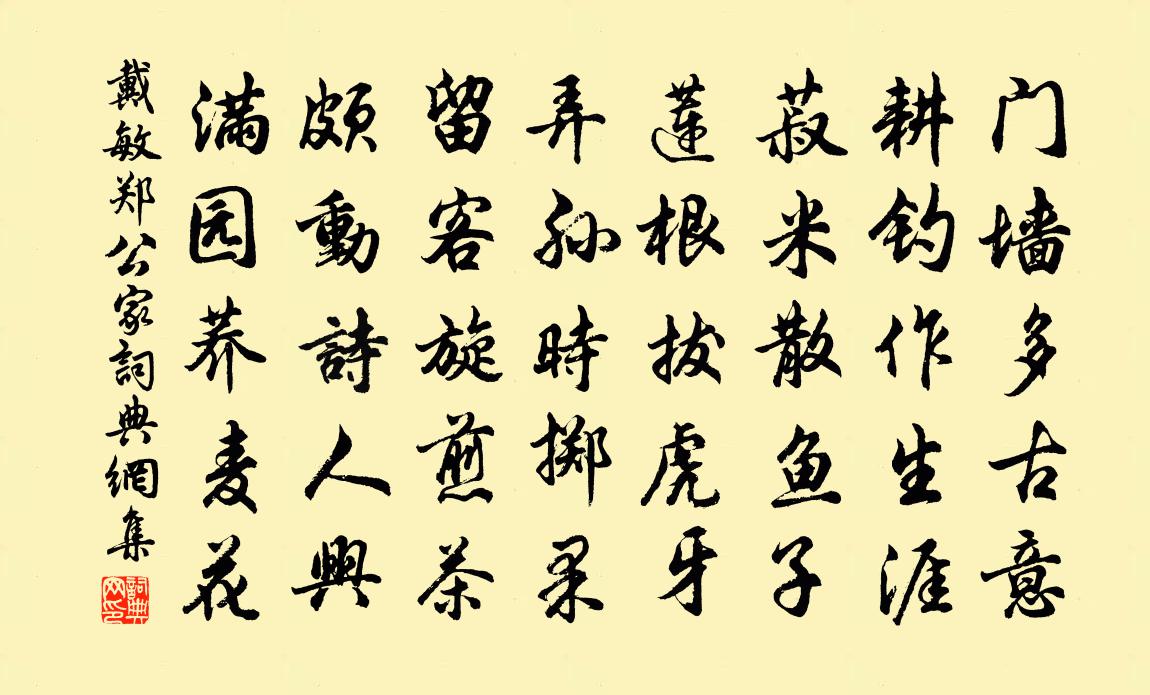 门墙多古意
耕钓作生涯
菽米散鱼子
莲根拔虎牙
弄孙時掷果
留客旋煎茶
颇動詩人興
满园荞麦花
戴敏郑公家詞典網集
詞典网印